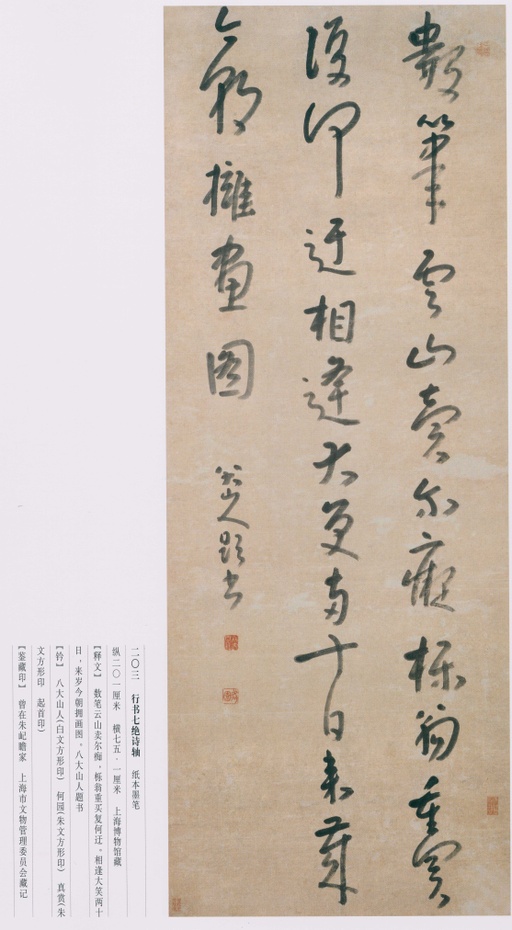 数笔云山卖尔痴栎翁重买
复何迂相逢大笑两十日来岁
今朝拥画图
八大山人题书
二〇三 行书七绝诗轴 纸本墨笔
纵二〇一厘米 横七五·一厘米 上海博物馆藏
【释文】 数笔云山卖尔痴，栎翁重买复何迂。相逢大笑两十
日，来岁今朝拥画图。八大山人题书
【钤】 八大山人(白文方形印) 何园(朱文方形印) 真赏(朱
文方形印 起首印)
【鉴藏印】 曾在朱屺瞻家 上海市文物管理委员会藏记